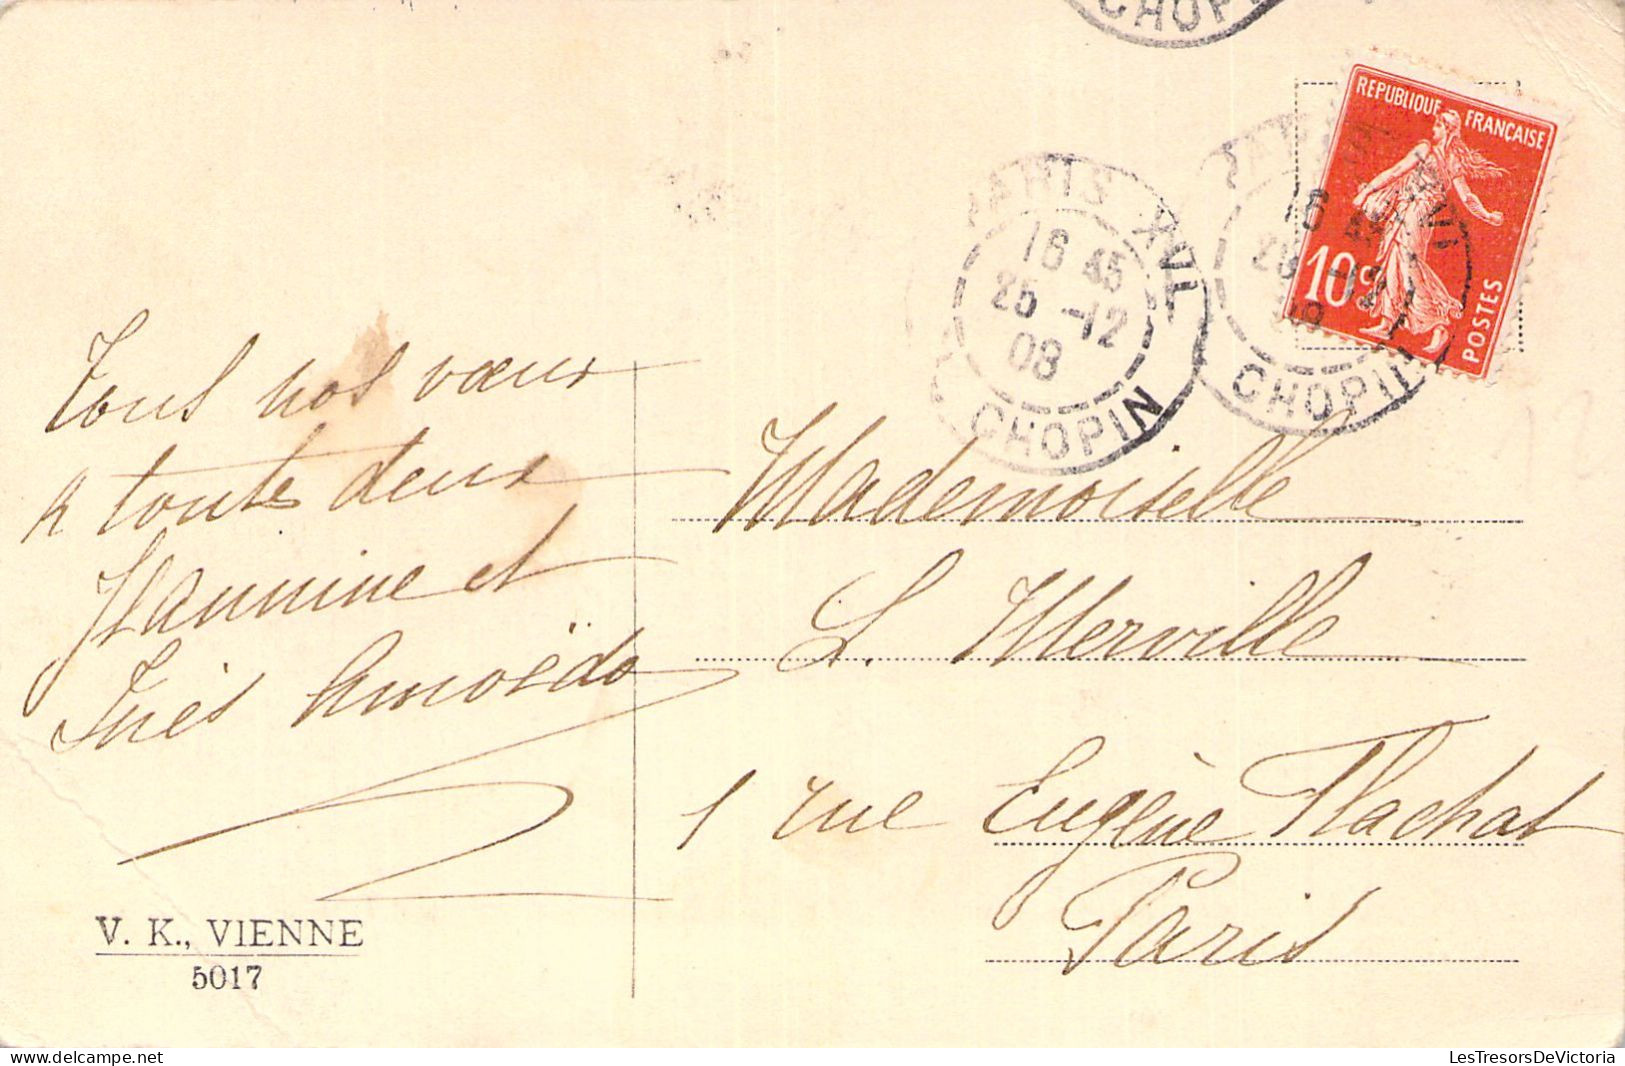 CHOPIN
REPUBLIQUE FRANÇAISE
10c
POSTES
PARIS XVI
16 45
25 -12
08
CHOPIN
PARIS XVI
16 45
25 -12
08
CHOPIN
Tous nos vœux
à toute deux
Jeannine et
Inès Amoëdo
Mademoiselle
L. Merville
1 rue Eugène Flachat
Paris
V. K., VIENNE
5017
LesTresorsDeVictoria